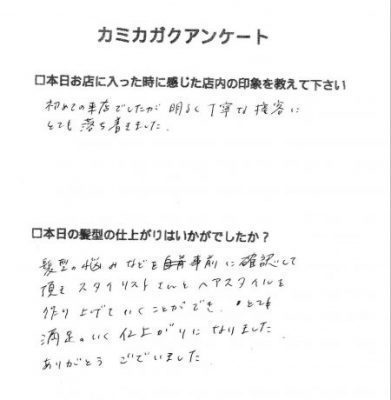 カミカガクアンケート
□本日お店に入った時に感じた店内の印象を教えて下さい
初めての来店でしたが 明るく丁寧な接客に
とても落ち着きました。
□本日の髪型の仕上がりはいかがでしたか？
髪型の悩みなどを事前に確認して
頂き スタイリストさんとヘアスタイルを
作り上げていくことができ、とても
満足のいく仕上がりになりました。
ありがとう ございました。